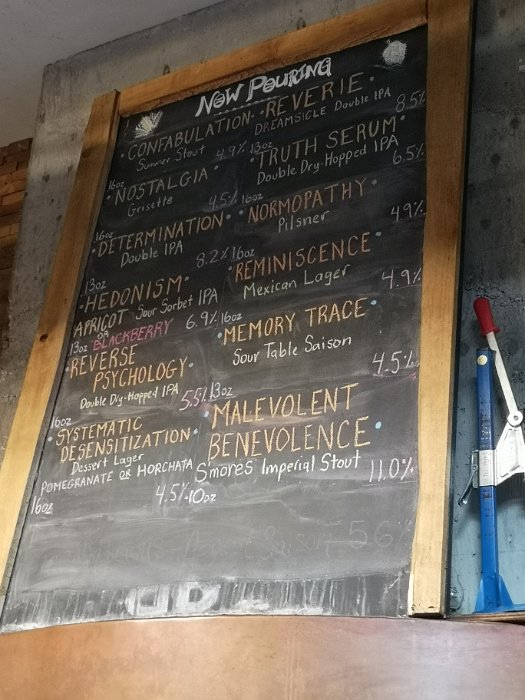 NOW POURING
• CONFABULATION •
Summer Stout 4.9%
16oz
• NOSTALGIA •
Grisette 4.5%
16oz
• DETERMINATION •
Double IPA 8.2%
13oz
• HEDONISM •
APRICOT Sour Sorbet IPA
OR BLACKBERRY 6.9%
13oz
• REVERSE
PSYCHOLOGY •
Double Dry-Hopped IPA 5.5%
16oz
• SYSTEMATIC
DESENSITIZATION •
Dessert Lager
POMEGRANATE OR HORCHATA
4.5%
16oz
• REVERIE •
DREAMSICLE Double IPA 8.5%
13oz
• TRUTH SERUM •
Double Dry-Hopped IPA
6.5%
16oz
• NORMOPATHY •
Pilsner
4.9%
16oz
• REMINISCENCE •
Mexican Lager
4.9%
16oz
• MEMORY TRACE •
Sour Table Saison
4.5%
13oz
• MALEVOLENT
BENEVOLENCE •
S'mores Imperial Stout 11.0%
10oz